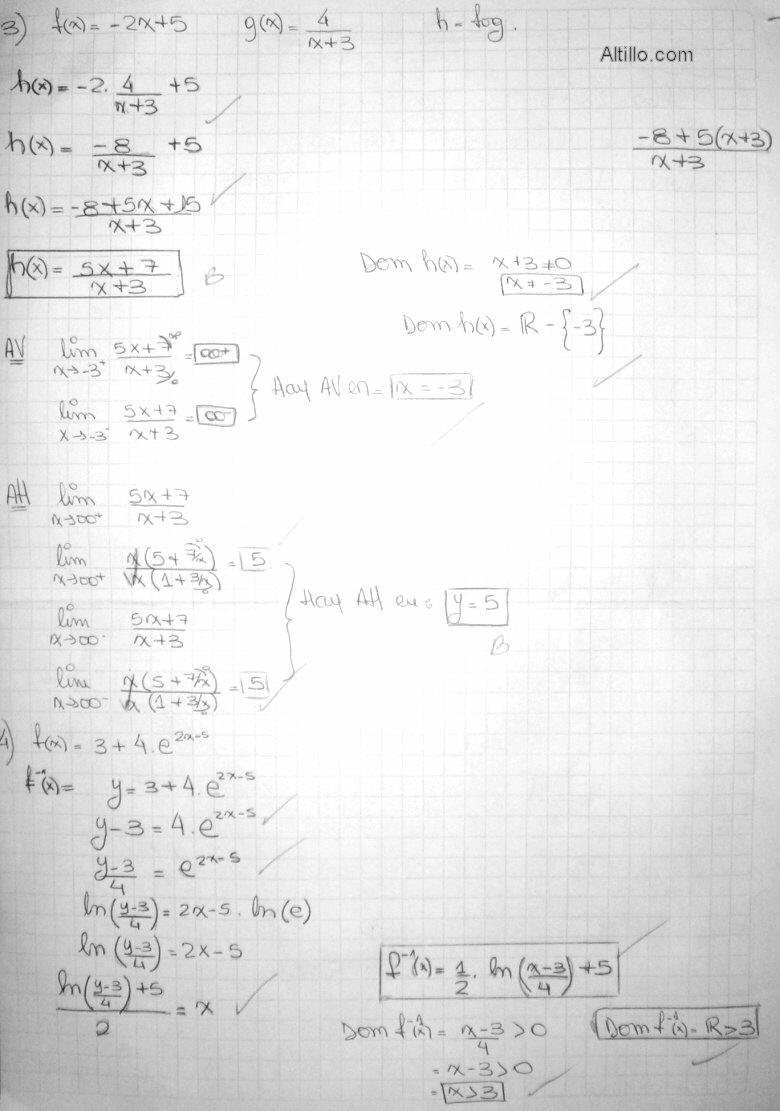 3) f(x) = -2x+5 g(x) = 4/(x+3) h = fog.
Altillo.com
h(x) = -2. 4/(x+3) +5
h(x) = -8/(x+3) +5
(-8+5(x+3))/(x+3)
h(x) = (-8+5x+15)/(x+3)
h(x) = (5x+7)/(x+3) B
Dom h(x) = x+3≠0
x ≠ -3
Dom h(x) = R - {-3}
AV lim x→-3⁺ (5x+7)/(x+3) = ∞+
Hay AV en = x = -3
lim x→-3⁻ (5x+7)/(x+3) = ∞-
AH lim x→∞⁺ (5x+7)/(x+3)
lim x→∞⁺ x(5+7/x)/x(1+3/x) = 5
Hay AH en: y = 5
B
lim x→∞⁻ (5x+7)/(x+3)
lim x→∞⁻ x(5+7/x)/x(1+3/x) = 5
4) f(x) = 3+4.e^(2x-5)
f⁻¹(x) = y = 3+4.e^(2x-5)
y-3 = 4.e^(2x-5)
(y-3)/4 = e^(2x-5)
ln((y-3)/4) = 2x-5 . ln(e)
ln((y-3)/4) = 2x-5
(ln((y-3)/4)+5)/2 = x
f⁻¹(x) = 1/2 . ln((x-3)/4) +5
Dom f⁻¹(x) = (x-3)/4 > 0
Dom f⁻¹(x) = R>3
= x-3>0
= x>3